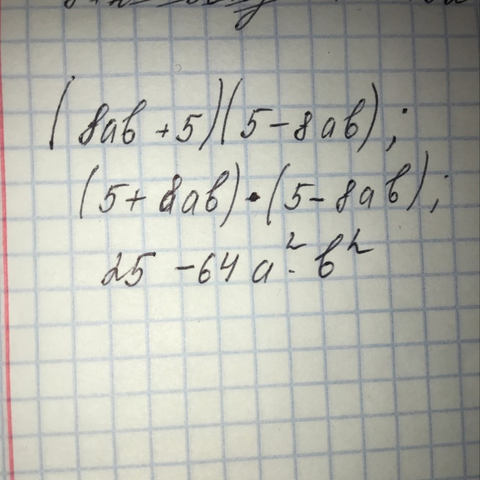 (8ab + 5)(5 - 8ab);
(5 + 8ab) · (5 - 8ab);
25 - 64a² · b²